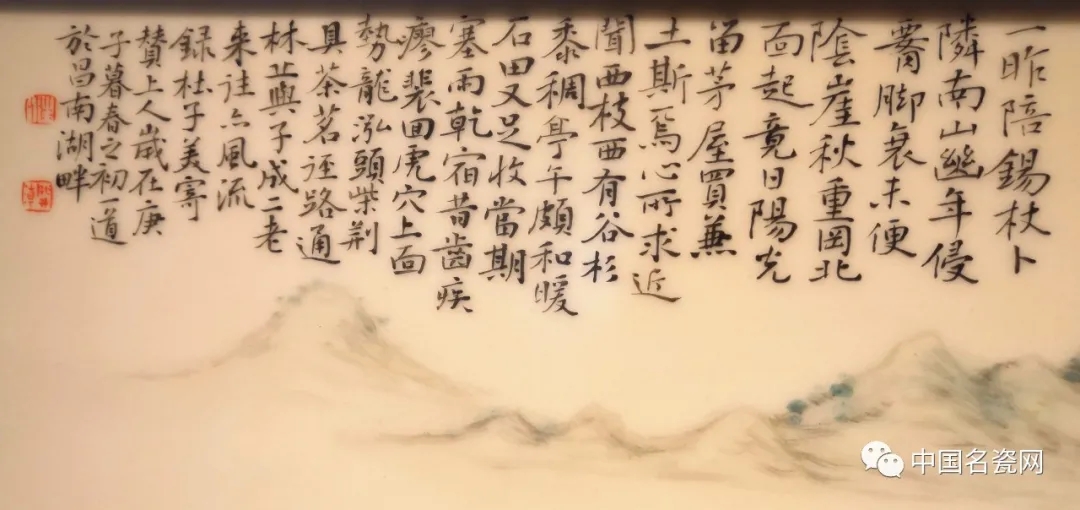 一昨陪錫杖卜
隣南山幽年侵
腰脚衰未便
陰崖秋重岡北
面起竟日陽光
留茅屋買兼
土斯焉心所求近
聞西枝西有谷杉
黍稠亭午頗和暖
石田又足收當期
塞雨乾宿昔齒疾
瘳裴回虎穴上面
勢龍泓頭柴荆
具茶茗逕路通
林丘與子成二老
来往亦風流
録杜子美寄
贊上人歲在庚
子暮春之初一道
於昌南湖畔
中国名瓷网